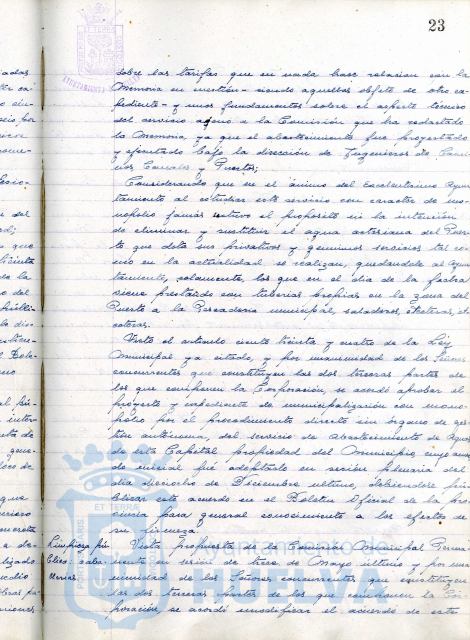 23
sobre las tarifas que en nada hace relacion con la
Memoria en cuestión - siendo aquellas objeto de otro ex-
pediente - y unos fundamentos sobre el aspecto técnico
del servicio ageno a la Comisión que ha redactado
la Memoria, ya que el abastecimiento fué proyectado
y ejecutado bajo la dirección de Ingenieros de Cami-
nos Canales y Puertos;
Considerando que en el ánimo del Excelentísimo Ayun-
tamiento al estudiar este servicio con caracter de mo-
nopolio jamás estuvo el propósito ni la intención
de eliminar y sustituir el agua artesiana del Puer-
to que dota sus privativos y genuinos servicios tal co-
mo en la actualidad se realizan, quedandole al Ayun-
tamiento, solamente, los que en el dia de la fecha
viene prestando con tuberias propias en la zona del
Puerto a la Pescaderia municipal, saladores, etcetera, et-
cetera.
Visto el articulo ciento treinta y cuatro de la Ley
Municipal ya citado, y por unanimidad de los Señores
concurrentes que constituyen las dos terceras partes de
los que componen la Corporación, se acordó aprobar el
proyecto y expediente de municipalización con mono-
polio por el procedimiento directo sin órgano de ges-
tión autonoma, del servicio de abastecimiento de Aguas
de esta Capital propiedad del Municipio cuyo acuer-
do inicial fué adoptado en sesión plenaria del
dia dieciocho de Diciembre ultimo, debiendose pu-
blicar este acuerdo en el Boletin Oficial de la Pro-
vincia para general conocimiento a los efectos de
su firmeza.
Limpieza pú-
blica:
Vista propuesta de la Comisión Municipal Perma-
nente en sesión de trece de Mayo ultimo y por una-
nimidad de los Señores concurrentes que constituyen
las dos terceras partes de los que componen la Cor-
poración, se acordó modificar el acuerdo de este
Ayuntamiento de
HUELVA